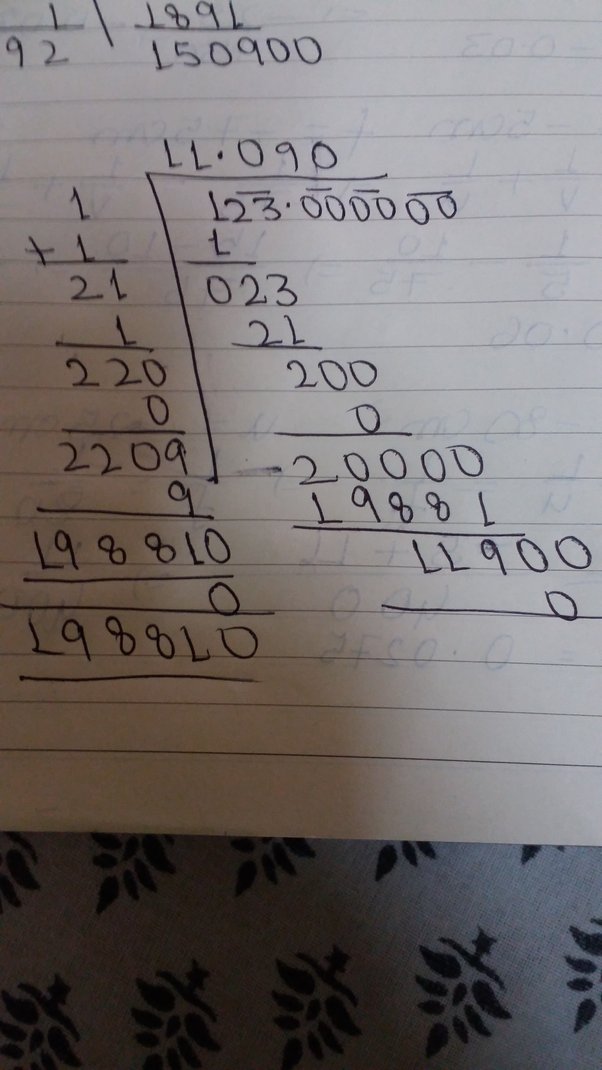 1 | 1891
92 | 150900
11.090
1 | 123.000000
+ 1 | 1
21 | 023
1 | 21
220 | 200
0 | 0
2209 | - 20000
9 | 19881
198810 | 11900
0 | 0
198810